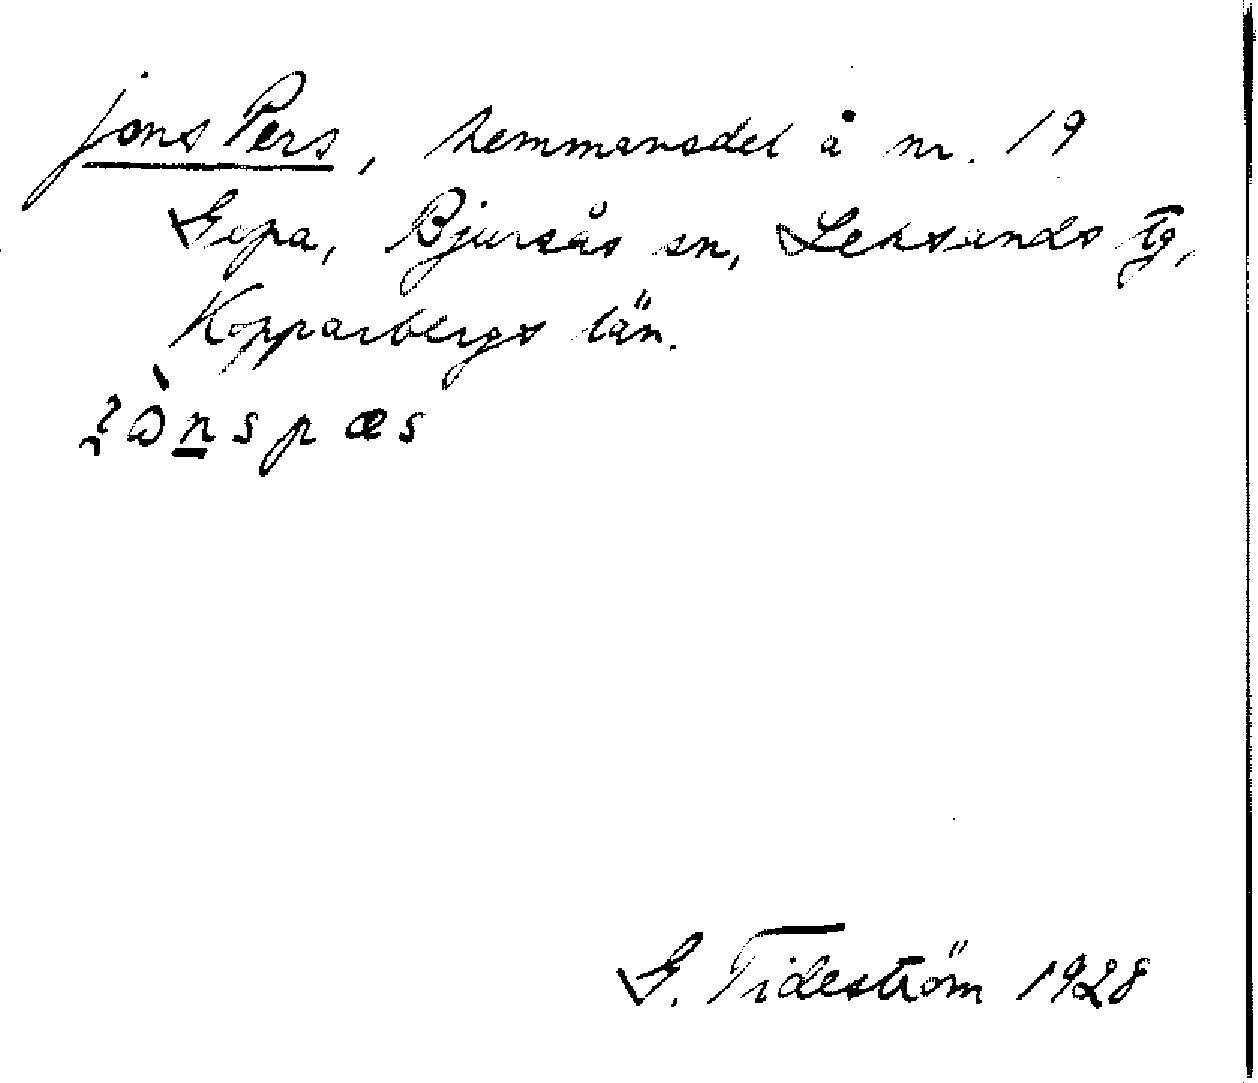 Jons Pers, hemmansdel å nr. 19
Gopa, Bjursås sn, Leksands tg,
Kopparbergs län.
G. Tideström 1928